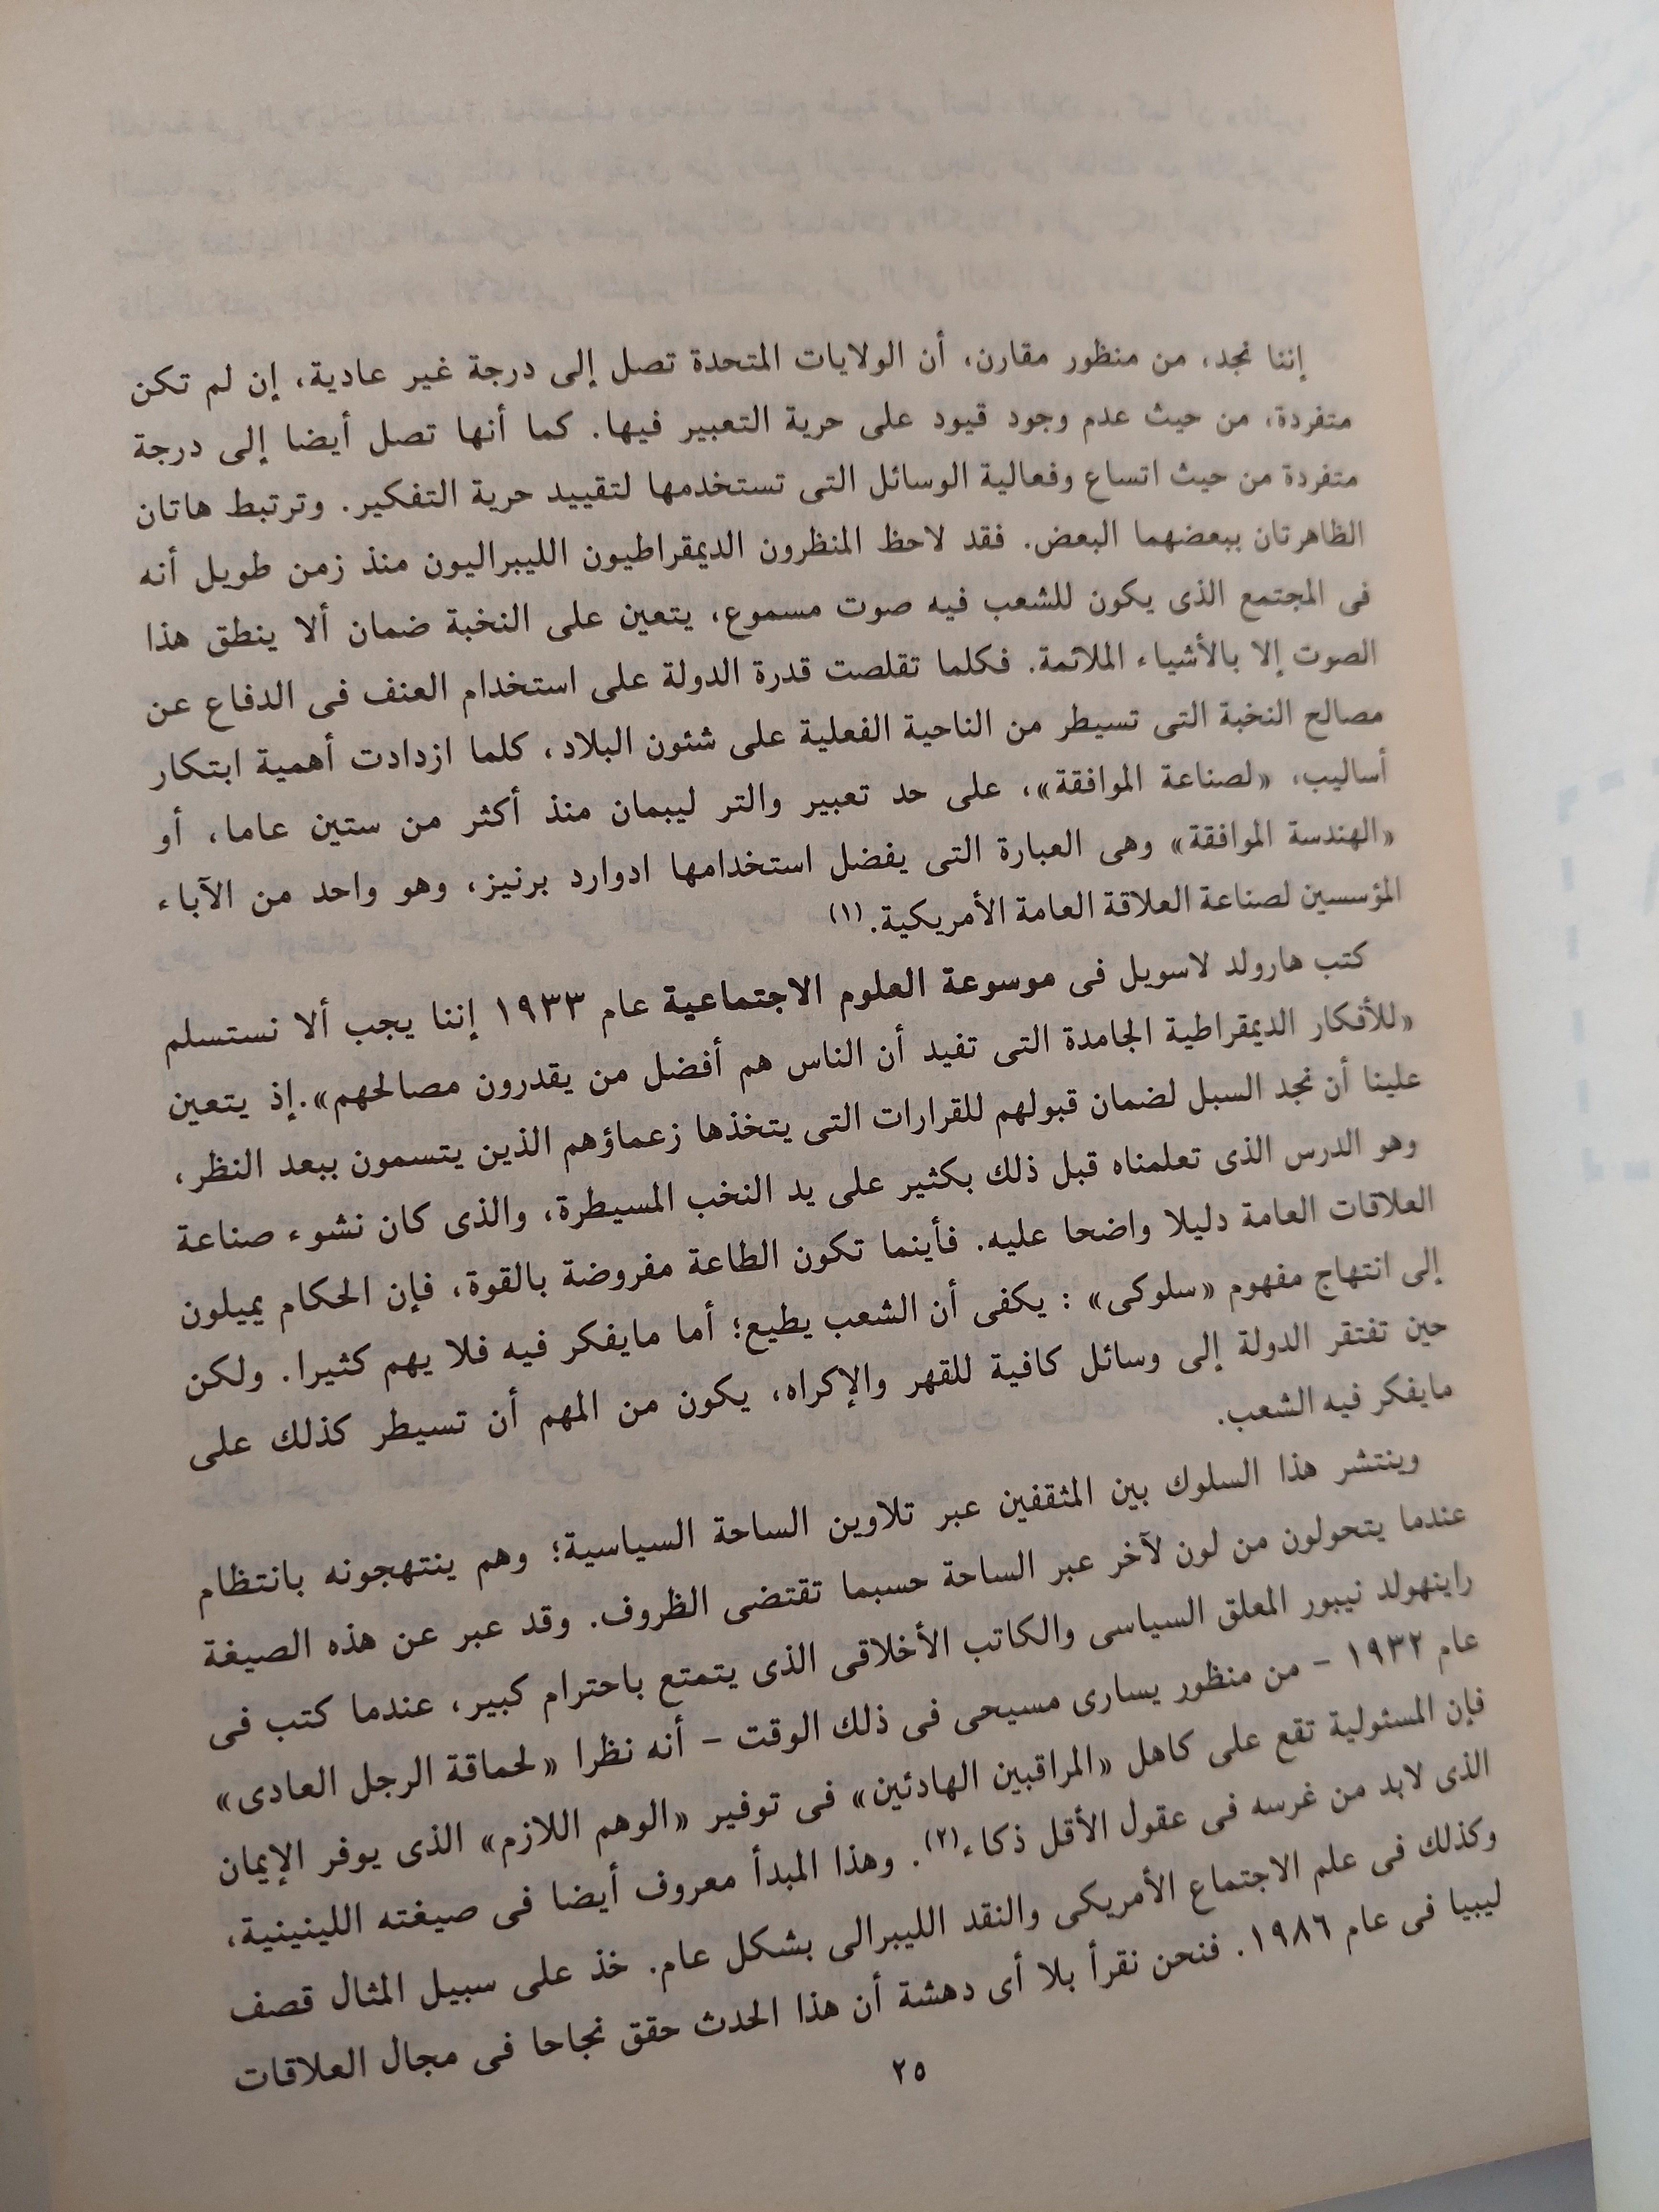 إننا نجد، من منظور مقارن، أن الولايات المتحدة تصل إلى درجة غير عادية، إن لم تكن
متفردة، من حيث عدم وجود قيود على حرية التعبير فيها. كما أنها تصل أيضا إلى درجة
متفردة من حيث اتساع وفعالية الوسائل التى تستخدمها لتقييد حرية التفكير. وترتبط هاتان
الظاهرتان ببعضهما البعض. فقد لاحظ المنظرون الديمقراطيون الليبراليون منذ زمن طويل أنه
فى المجتمع الذى يكون للشعب فيه صوت مسموع، يتعين على النخبة ضمان ألا ينطق هذا
الصوت إلا بالأشياء الملائمة. فكلما تقلصت قدرة الدولة على استخدام العنف فى الدفاع عن
مصالح النخبة التى تسيطر من الناحية الفعلية على شئون البلاد، كلما ازدادت أهمية ابتكار
أساليب، «لصناعة الموافقة»، على حد تعبير والتر ليبمان منذ أكثر من ستين عاما، أو
«الهندسة الموافقة» وهى العبارة التى يفضل استخدامها ادوارد برنيز، وهو واحد من الآباء
المؤسسين لصناعة العلاقة العامة الأمريكية.(١)
كتب هارولد لاسويل فى موسوعة العلوم الاجتماعية عام ١٩٣٣ إننا يجب ألا نستسلم
«للأفكار الديمقراطية الجامدة التى تفيد أن الناس هم أفضل من يقدرون مصالحهم».إذ يتعين
علينا أن نجد السبل لضمان قبولهم للقرارات التى يتخذها زعماؤهم الذين يتسمون ببعد النظر،
وهو الدرس الذى تعلمناه قبل ذلك بكثير على يد النخب المسيطرة، والذى كان نشوء صناعة
العلاقات العامة دليلا واضحا عليه. فأينما تكون الطاعة مفروضة بالقوة، فإن الحكام يميلون
إلى انتهاج مفهوم «سلوكى» : يكفى أن الشعب يطيع؛ أما مايفكر فيه فلا يهم كثيرا. ولكن
حين تفتقر الدولة إلى وسائل كافية للقهر والإكراه، يكون من المهم أن تسيطر كذلك على
مايفكر فيه الشعب.
وينتشر هذا السلوك بين المثقفين عبر تلاوين الساحة السياسية؛ وهم ينتهجونه بانتظام
عندما يتحولون من لون لآخر عبر الساحة حسبما تقتضى الظروف. وقد عبر عن هذه الصيغة
راينهولد نيبور المعلق السياسى والكاتب الأخلاقى الذى يتمتع باحترام كبير، عندما كتب فى
عام ١٩٣٢ - من منظور يسارى مسيحى فى ذلك الوقت - أنه نظرا «لحماقة الرجل العادى»
فإن المسئولية تقع على كاهل «المراقبين الهادئين» فى توفير «الوهم اللازم» الذى يوفر الإيمان
الذى لابد من غرسه فى عقول الأقل ذكاء(٢). وهذا المبدأ معروف أيضا فى صيغته اللينينية،
وكذلك فى علم الاجتماع الأمريكى والنقد الليبرالى بشكل عام. خذ على سبيل المثال قصف
ليبيا فى عام ١٩٨٦. فنحن نقرأ بلا أى دهشة أن هذا الحدث حقق نجاحا فى مجال العلاقات
٢٥